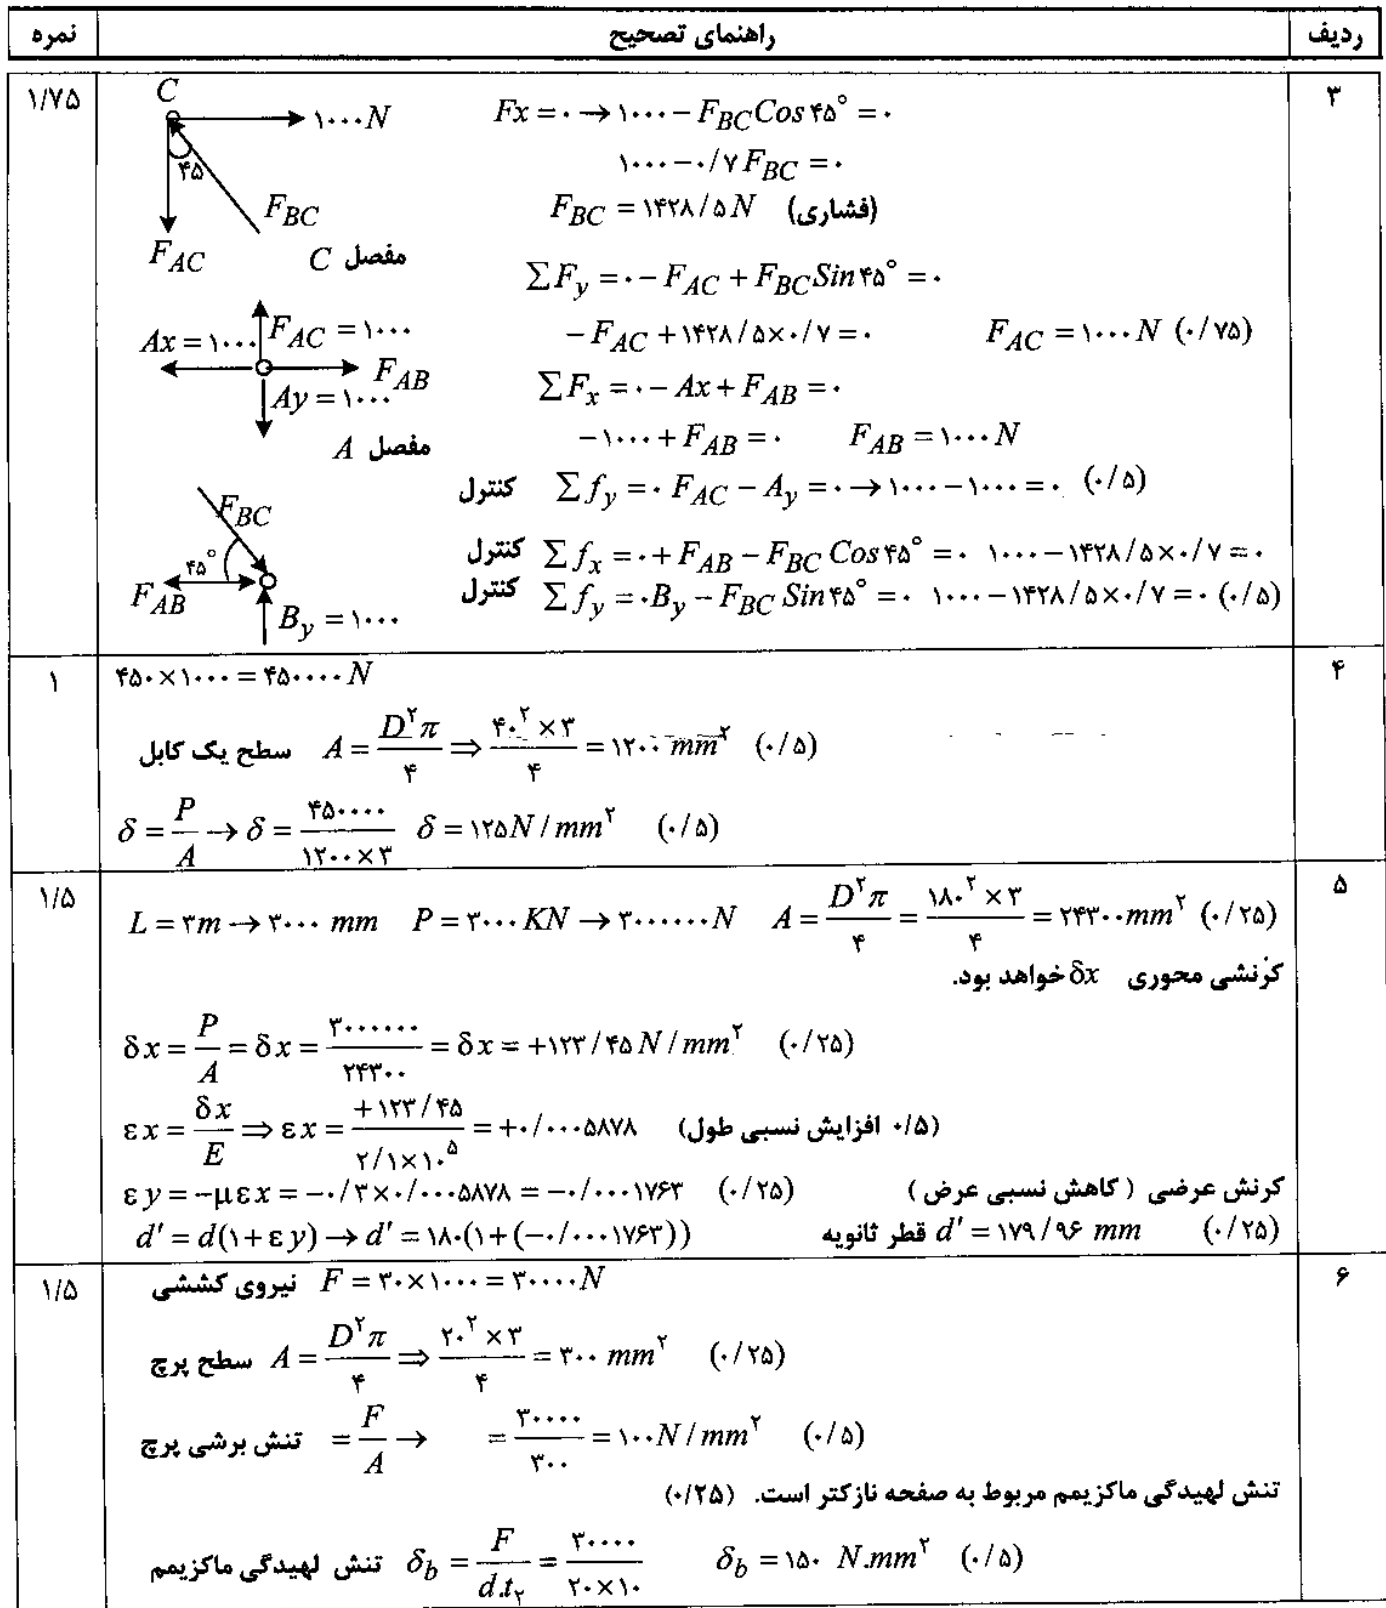 ردیف راهنمای تصحیح نمره
۳ ۱/۷۵
C
۱۰۰۰N
۴۵
F_BC
F_AC
مفصل C
Fx = ۰ → ۱۰۰۰ − F_BC Cos ۴۵° = ۰
۱۰۰۰ − ۰/۷ F_BC = ۰
F_BC = ۱۴۲۸/۵ N (فشاری)
∑F_y = ۰ − F_AC + F_BC Sin ۴۵° = ۰
− F_AC + ۱۴۲۸/۵ × ۰/۷ = ۰ F_AC = ۱۰۰۰ N (۰/۷۵)
Ax = ۱۰۰۰ F_AC = ۱۰۰۰
F_AB
Ay = ۱۰۰۰
مفصل A
∑F_x = ۰ − Ax + F_AB = ۰
−۱۰۰۰ + F_AB = ۰ F_AB = ۱۰۰۰ N
کنترل ∑f_y = ۰ F_AC − A_y = ۰ → ۱۰۰۰ − ۱۰۰۰ = ۰ (۰/۵)
F_BC
۴۵°
F_AB
B_y = ۱۰۰۰
کنترل ∑f_x = ۰ + F_AB − F_BC Cos ۴۵° = ۰ ۱۰۰۰ − ۱۴۲۸/۵ × ۰/۷ = ۰
کنترل ∑f_y = ۰ B_y − F_BC Sin ۴۵° = ۰ ۱۰۰۰ − ۱۴۲۸/۵ × ۰/۷ = ۰ (۰/۵)
۴ ۱
۴۵۰ × ۱۰۰۰ = ۴۵۰۰۰۰ N
سطح یک کابل A = D²π/۴ ⇒ ۴۰² × ۳/۴ = ۱۲۰۰ mm² (۰/۵)
δ = P/A → δ = ۴۵۰۰۰۰/۱۲۰۰×۳ δ = ۱۲۵ N / mm² (۰/۵)
۵ ۱/۵
L = ۳m → ۳۰۰۰ mm P = ۳۰۰۰ KN → ۳۰۰۰۰۰۰ N A = D²π/۴ = ۱۸۰² × ۳/۴ = ۲۴۳۰۰ mm² (۰/۲۵)
کرنشی محوری δx خواهد بود.
δx = P/A = δx = ۳۰۰۰۰۰۰/۲۴۳۰۰ = δx = +۱۲۳/۴۵ N / mm² (۰/۲۵)
εx = δx/E ⇒ εx = +۱۲۳/۴۵/۲/۱×۱۰⁵ = +۰/۰۰۰۵۸۷۸ (افزایش نسبی طول ۰/۵)
εy = −μεx = −۰/۳ × ۰/۰۰۰۵۸۷۸ = −۰/۰۰۰۱۷۶۳ (۰/۲۵) کرنش عرضی ( کاهش نسبی عرض )
d′ = d(۱ + εy) → d′ = ۱۸۰(۱ + (−۰/۰۰۰۱۷۶۳)) قطر ثانویه d′ = ۱۷۹/۹۶ mm (۰/۲۵)
۶ ۱/۵
نیروی کششی F = ۳۰ × ۱۰۰۰ = ۳۰۰۰۰ N
سطح پرچ A = D²π/۴ ⇒ ۲۰² × ۳/۴ = ۳۰۰ mm² (۰/۲۵)
تنش برشی پرچ = F/A → = ۳۰۰۰۰/۳۰۰ = ۱۰۰ N / mm² (۰/۵)
تنش لهیدگی ماکزیمم مربوط به صفحه نازکتر است. (۰/۲۵)
تنش لهیدگی ماکزیمم δ_b = F/d.t₂ = ۳۰۰۰۰/۲۰×۱۰ δ_b = ۱۵۰ N.mm² (۰/۵)